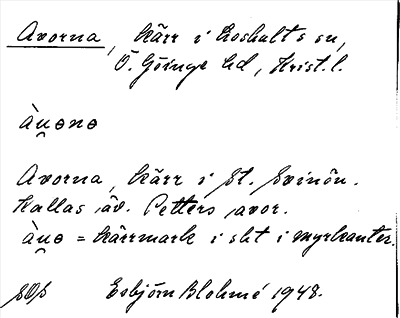 Avorna, kärr i Loshults sn,
Ö. Göinge hd, Krist. l.
àu̯ɵnɵ
Avorna, kärr i St. Svinön.
Kallas äv. Petters avor.
àu̯ɵ = kärrmark i skt i myrkanter.
SOS Esbjörn Blohmé 1948.